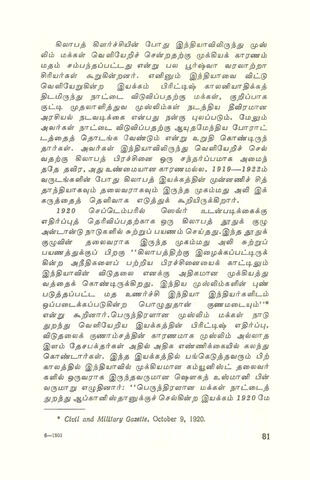 கிலாபத் கிளர்ச்சியின் போது இந்தியாவிலிருந்து முஸ்
லிம் மக்கள் வெளியேறிச் சென்றதற்கு முக்கியக் காரணம்
மதம் சம்பந்தப்பட்டது என்று பல பூர்ஷ்வா வரலாற்றா
சிரியர்கள் கூறுகின்றனர். எனினும் இந்தியாவை விட்டு
வெளியேறுகின்ற இயக்கம் பிரிட்டிஷ் காலனியாதிக்கத்
திடமிருந்து நாட்டை விடுவிப்பதற்கு மக்கள், குறிப்பாக
குட்டி முதலாளித்துவ முஸ்லிம்கள் நடத்திய தீவிரமான
அரசியல் நடவடிக்கை என்பது நன்கு புலப்படும், மேலும்
அவர்கள் நாட்டை விடுவிப்பதற்கு ஆயுதமேந்திய போராட்
டத்தைத் தொடங்க வேண்டும் என்று உறுதி கொண்டிருந்
தார்கள். அவர்கள் இந்தியாவிலிருந்து வெளியேறிச் செல்
வதற்கு கிலாபத் பிரச்சினை ஒரு சந்தர்ப்பமாக அமைந்
ததே தவிர, அது உண்மையான காரணமல்ல. 1919—1922ம்
வருடங்களின் போது கிலாபத் இயக்கத்தின் முன்னணிச் சித்
தாந்தியாகவும் தலைவராகவும் இருந்த முகம்மது அலி இக்
கருத்தைத் தெளிவாக எடுத்துக் கூறியிருக்கிறார்.
1920 செப்டெம்பரில் லெவர் உடன்படிக்கைக்கு
எதிர்ப்புத் தெரிவிப்பதற்காக ஒரு கிலாபத் தூதுக் குழு
அன்டாண்டு நாடுகளில் சுற்றுப் பயணம் செய்தது.இந்த தூதுக்
குழுவின் தலைவராக இருந்த முகம்மது அலி சுற்றுப்
பயணத்துக்குப் பிறகு ''கிலாபத்திற்கு இழைக்கப்பட்டிருக்
கின்ற அநீதிகளைப் பற்றிய பிரச்சினையைக் காட்டிலும்
இந்தியாவின் விடுதலை எனக்கு அதிகமான முக்கியத்து
வத்தைக் கொண்டிருக்கிறது. இந்திய முஸ்லிம்களின் புண்
படுத்தப்பட்ட மத உணர்ச்சி இந்தியா இந்தியர்களிடம்
ஒப்படைக்கப்படுகின்ற பொழுதுதான் குணமடையும்''*
என்று கூறினார்.பெருந்திரளான முஸ்லிம் மக்கள் நாடு
துறந்து வெளியேறிய இயக்கத்தின் பிரிட்டிஷ் எதிர்ப்பு,
விடுதலைக் குணாம்சத்தின் காரணமாக முஸ்லிம் அல்லாத
இளம் தேசபக்தர்கள் அதில் அதிக எண்ணிக்கையில் கலந்து
கொண்டார்கள். இந்த இயக்கத்தில் பங்கெடுத்தவரும் பிற்
காலத்தில் இந்தியாவில் முக்கியமான கம்யூனிஸ்ட் தலைவர்
களில் ஒருவராக இருந்தவருமான ஷௌகத் உஸ்மானி பின்
வருமாறு எழுதினார்: ''பெருந்திரளான மக்கள் நாட்டைத்
துறந்து ஆப்கானிஸ்தானுக்குச் செல்கின்ற இயக்கம் 1920 மே
* Civil and Military Gazette, October 9, 1920.
81